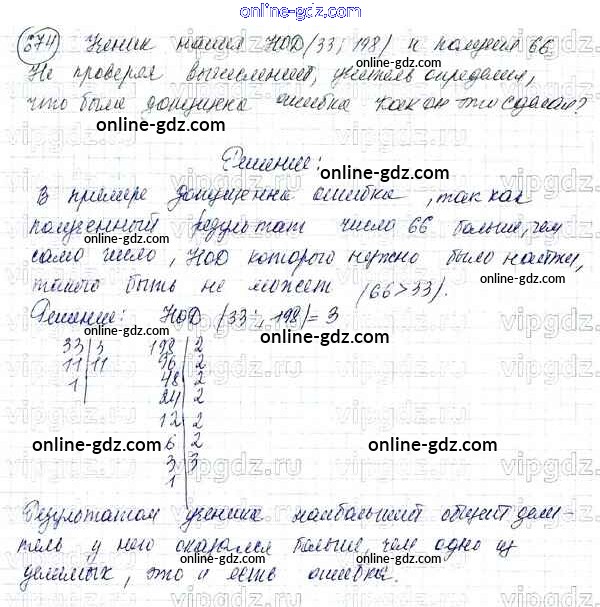 online-gdz.com
674 Ученик нашел НОД (33; 198) и получил 66.
Не проверяя вычислений, учитель определил,
что была допущена ошибка. Как он это сделал?
online-gdz.com
Решение:
online-gdz.com
В примере допущенна ошибка, так как
полученный результат число 66 больше, чем
online-gdz.com
само число, НОД которого нужно было найти,
такого быть не может (66>33).
online-gdz.com
Решение: НОД (33; 198)= 3
33 | 3   198 | 2
11 | 11   96 | 2
1 |   48 | 2
24 | 2
12 | 2
online-gdz.com
6 | 2
3 | 3
1
Результатом ученика наибольший общий дели-
online-gdz.com
тель у него оказался больше, чем одно из
делимых, это и есть ошибка.
online-gdz.com